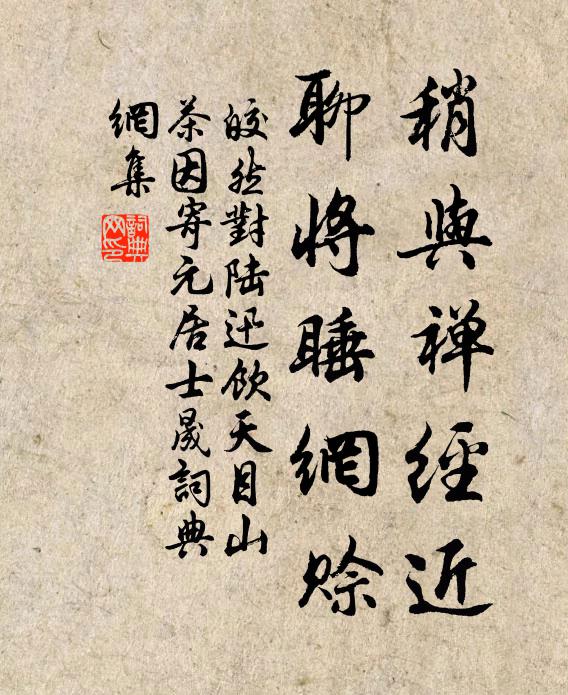 稍與禅經近
聊將睡網賒
皎然對陆迅飲天目山
茶因寄元居士晟詞典
網集
詞典網印